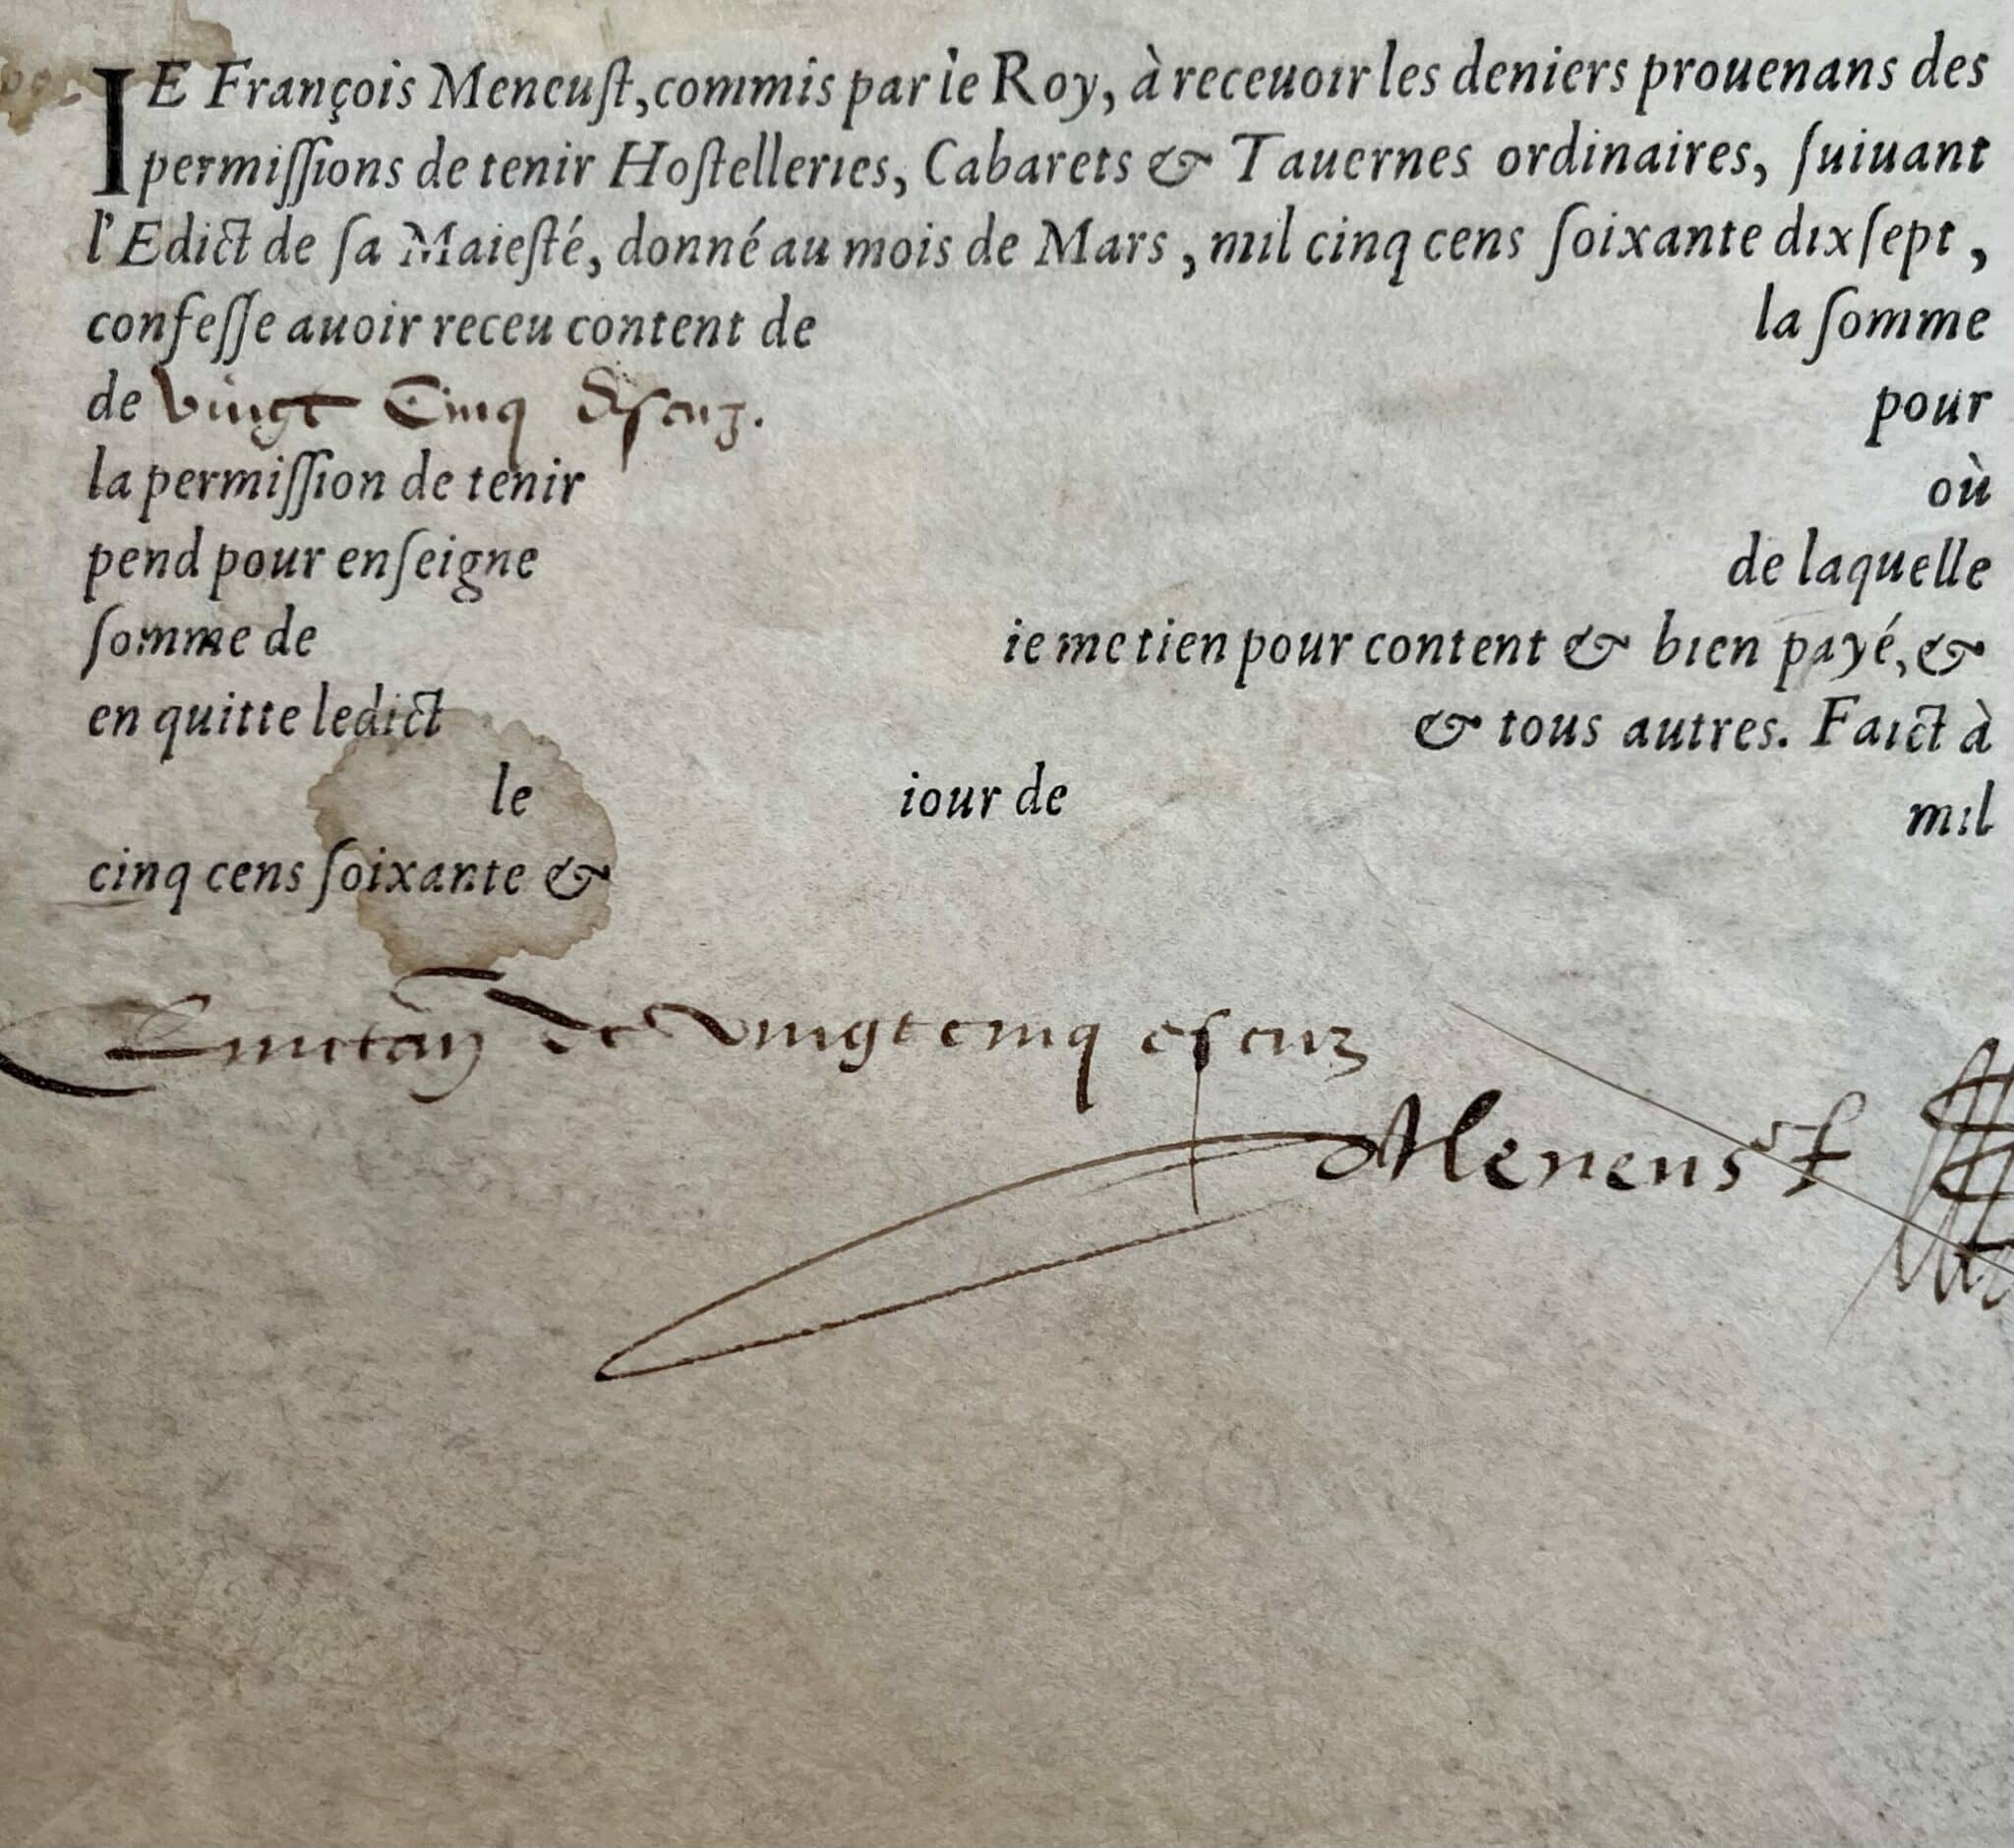 IE François Meneuſt, commis par le Roy, à receuoir les deniers prouenans des
permiſſions de tenir Hoſtelleries, Cabarets & Tauernes ordinaires, ſuiuant
l'Edict de ſa Maieſté, donné au mois de Mars, mil cinq cens ſoixante dixſept,
confeſſe auoir receu content de la ſomme
de vingt Cinq Eſcuz. pour
la permiſſion de tenir où
pend pour enſeigne de laquelle
ſomme de ie me tien pour content & bien payé, &
en quitte ledict & tous autres. Faict à
le iour de mil
cinq cens ſoixante &
de vingt cinq eſcuz
Meneust